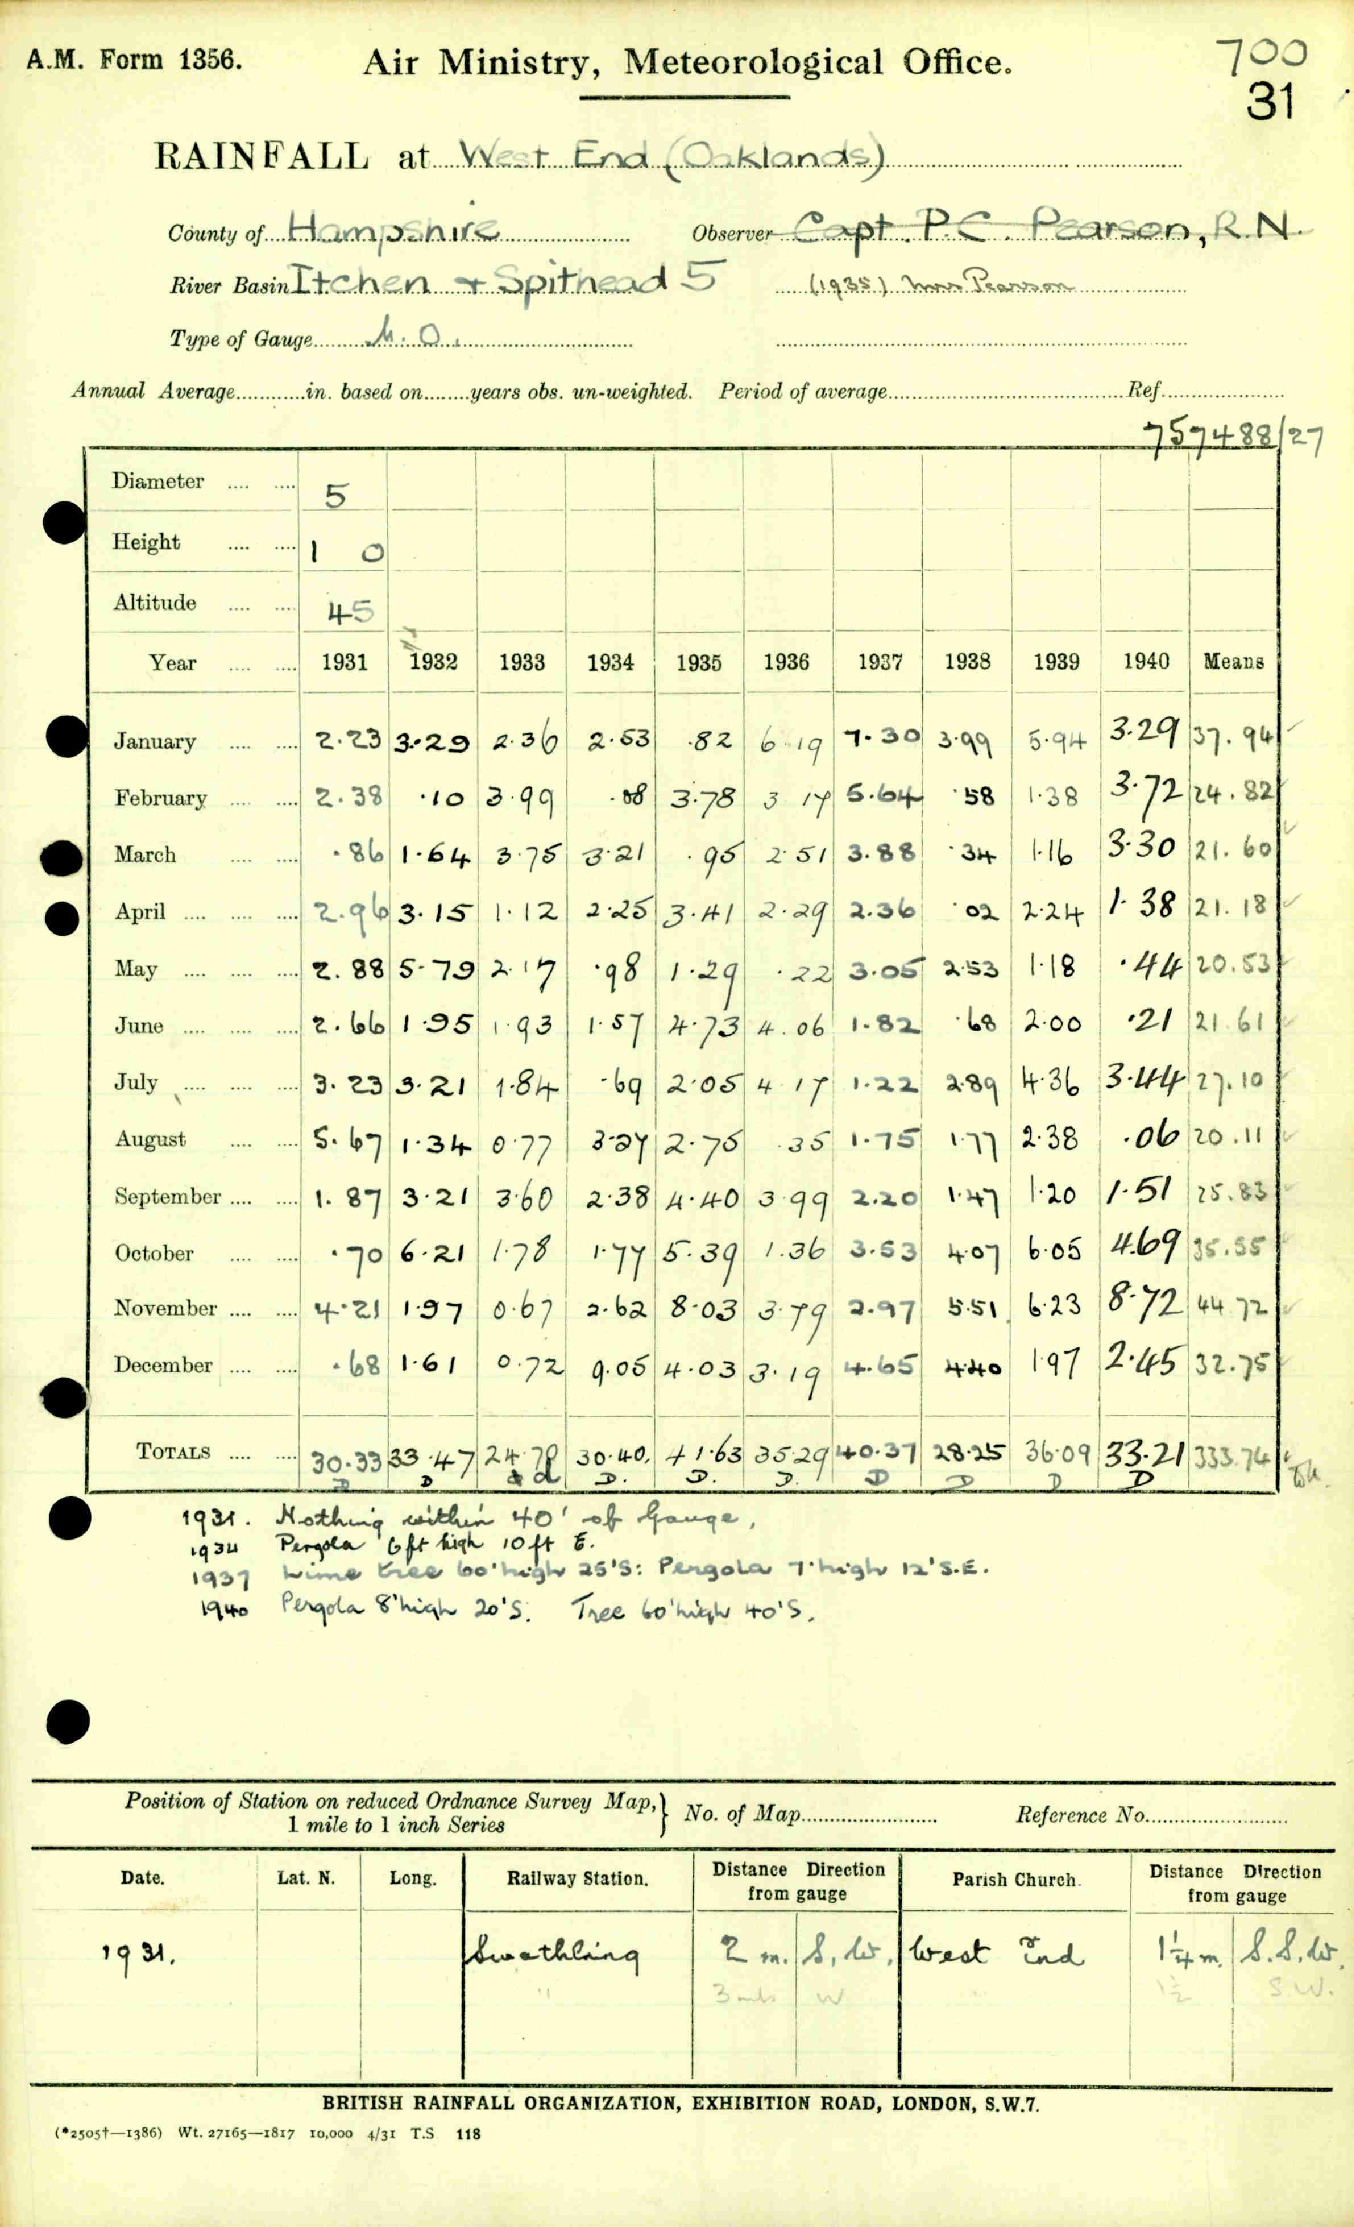 A.M. Form 1356. Air Ministry, Meteorological Office. 700
31
RAINFALL at West End (Oaklands)
County of Hampshire Observer Capt. P.C. Pearson, R.N.
River Basin Itchen + Spithead 5 (1935) Mrs Pearson
Type of Gauge M.O.
Annual Average in. based on years obs. un-weighted. Period of average Ref.
757488/27
Diameter 5
Height 1 0
Altitude 45
Year 1931 1932 1933 1934 1935 1936 1937 1938 1939 1940 Means
January 2.23 3.29 2.36 2.53 .82 6.19 7.30 3.99 5.94 3.29 37.94
February 2.38 .10 3.99 .08 3.78 3.17 5.64 .58 1.38 3.72 24.82
March .86 1.64 3.75 3.21 .95 2.51 3.88 .34 1.16 3.30 21.60
April 2.96 3.15 1.12 2.25 3.41 2.29 2.36 .02 2.24 1.38 21.18
May 2.88 5.79 2.17 .98 1.29 .22 3.05 2.53 1.18 .44 20.53
June 2.66 1.95 1.93 1.57 4.73 4.06 1.82 .68 2.00 .21 21.61
July 3.23 3.21 1.84 .69 2.05 4.17 1.22 2.89 4.36 3.44 27.10
August 5.67 1.34 0.77 3.27 2.75 .35 1.75 1.77 2.38 .06 20.11
September 1.87 3.21 3.60 2.38 4.40 3.99 2.20 1.47 1.20 1.51 25.83
October .70 6.21 1.78 1.77 5.39 1.36 3.53 4.07 6.05 4.69 35.55
November 4.21 1.97 0.67 2.62 8.03 3.79 2.97 5.51 6.23 8.72 44.72
December .68 1.61 0.72 9.05 4.03 3.19 4.65 4.40 1.97 2.45 32.75
TOTALS 30.33 33.47 24.70 30.40 41.63 35.29 40.37 28.25 36.09 33.21 333.74
D D d D. D. D. D D D D
1931. Nothing within 40' of Gauge.
1934 Pergola 6ft high 10ft E.
1937 Lime tree 60'high 25'S: Pergola 7'high 12'S.E.
1940 Pergola 8'high 20'S. Tree 60'high 40'S.
Position of Station on reduced Ordnance Survey Map, No. of Map Reference No.
1 mile to 1 inch Series
Date. Lat. N. Long. Railway Station. Distance Direction from gauge Parish Church. Distance Direction from gauge
1931. Swathling 2 m. S.W. West End 1¼ m. S.S.W.
" 3 mls W 1½ S.W.
BRITISH RAINFALL ORGANIZATION, EXHIBITION ROAD, LONDON, S.W.7.
(*2505†—1386) Wt. 27165—1817 10,000 4/31 T.S 118